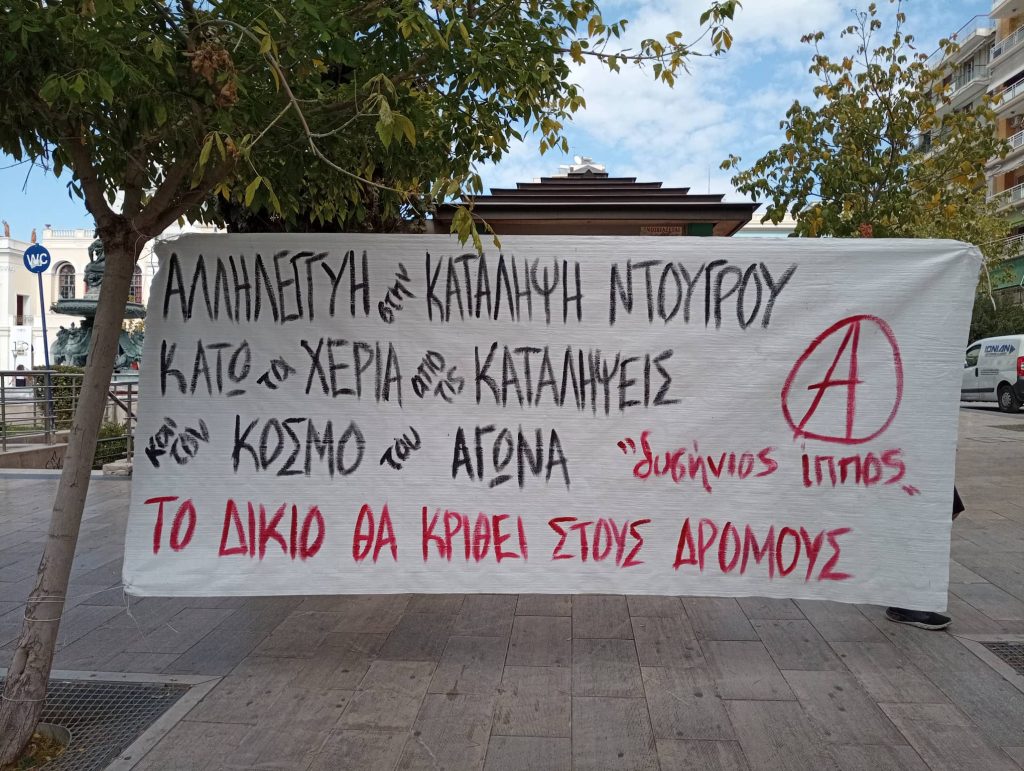 WC
ΑΛΛΗΛΕΓΓΥΗ στην ΚΑΤΑΛΗΨΗ ΝΤΟΥΓΡΟΥ
ΚΑΤΩ τα ΧΕΡΙΑ από τις ΚΑΤΑΛΗΨΕΙΣ
και τον ΚΟΣΜΟ του ΑΓΩΝΑ
Α
"δυσήνιος ίππος"
ΤΟ ΔΙΚΙΟ ΘΑ ΚΡΙΘΕΙ ΣΤΟΥΣ ΔΡΟΜΟΥΣ
IONIAN